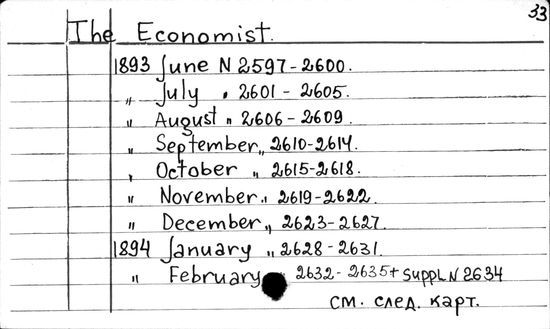 33
The Economist.
1893 June N 2597-2600.
" July " 2601 - 2605.
" August " 2606 - 2609.
" September " 2610-2614.
" October " 2615-2618.
" November " 2619-2622.
" December " 2623-2627.
1894 January " 2628 - 2631.
" February " 2632 - 2635 + Suppl N 2634
см. след. карт.